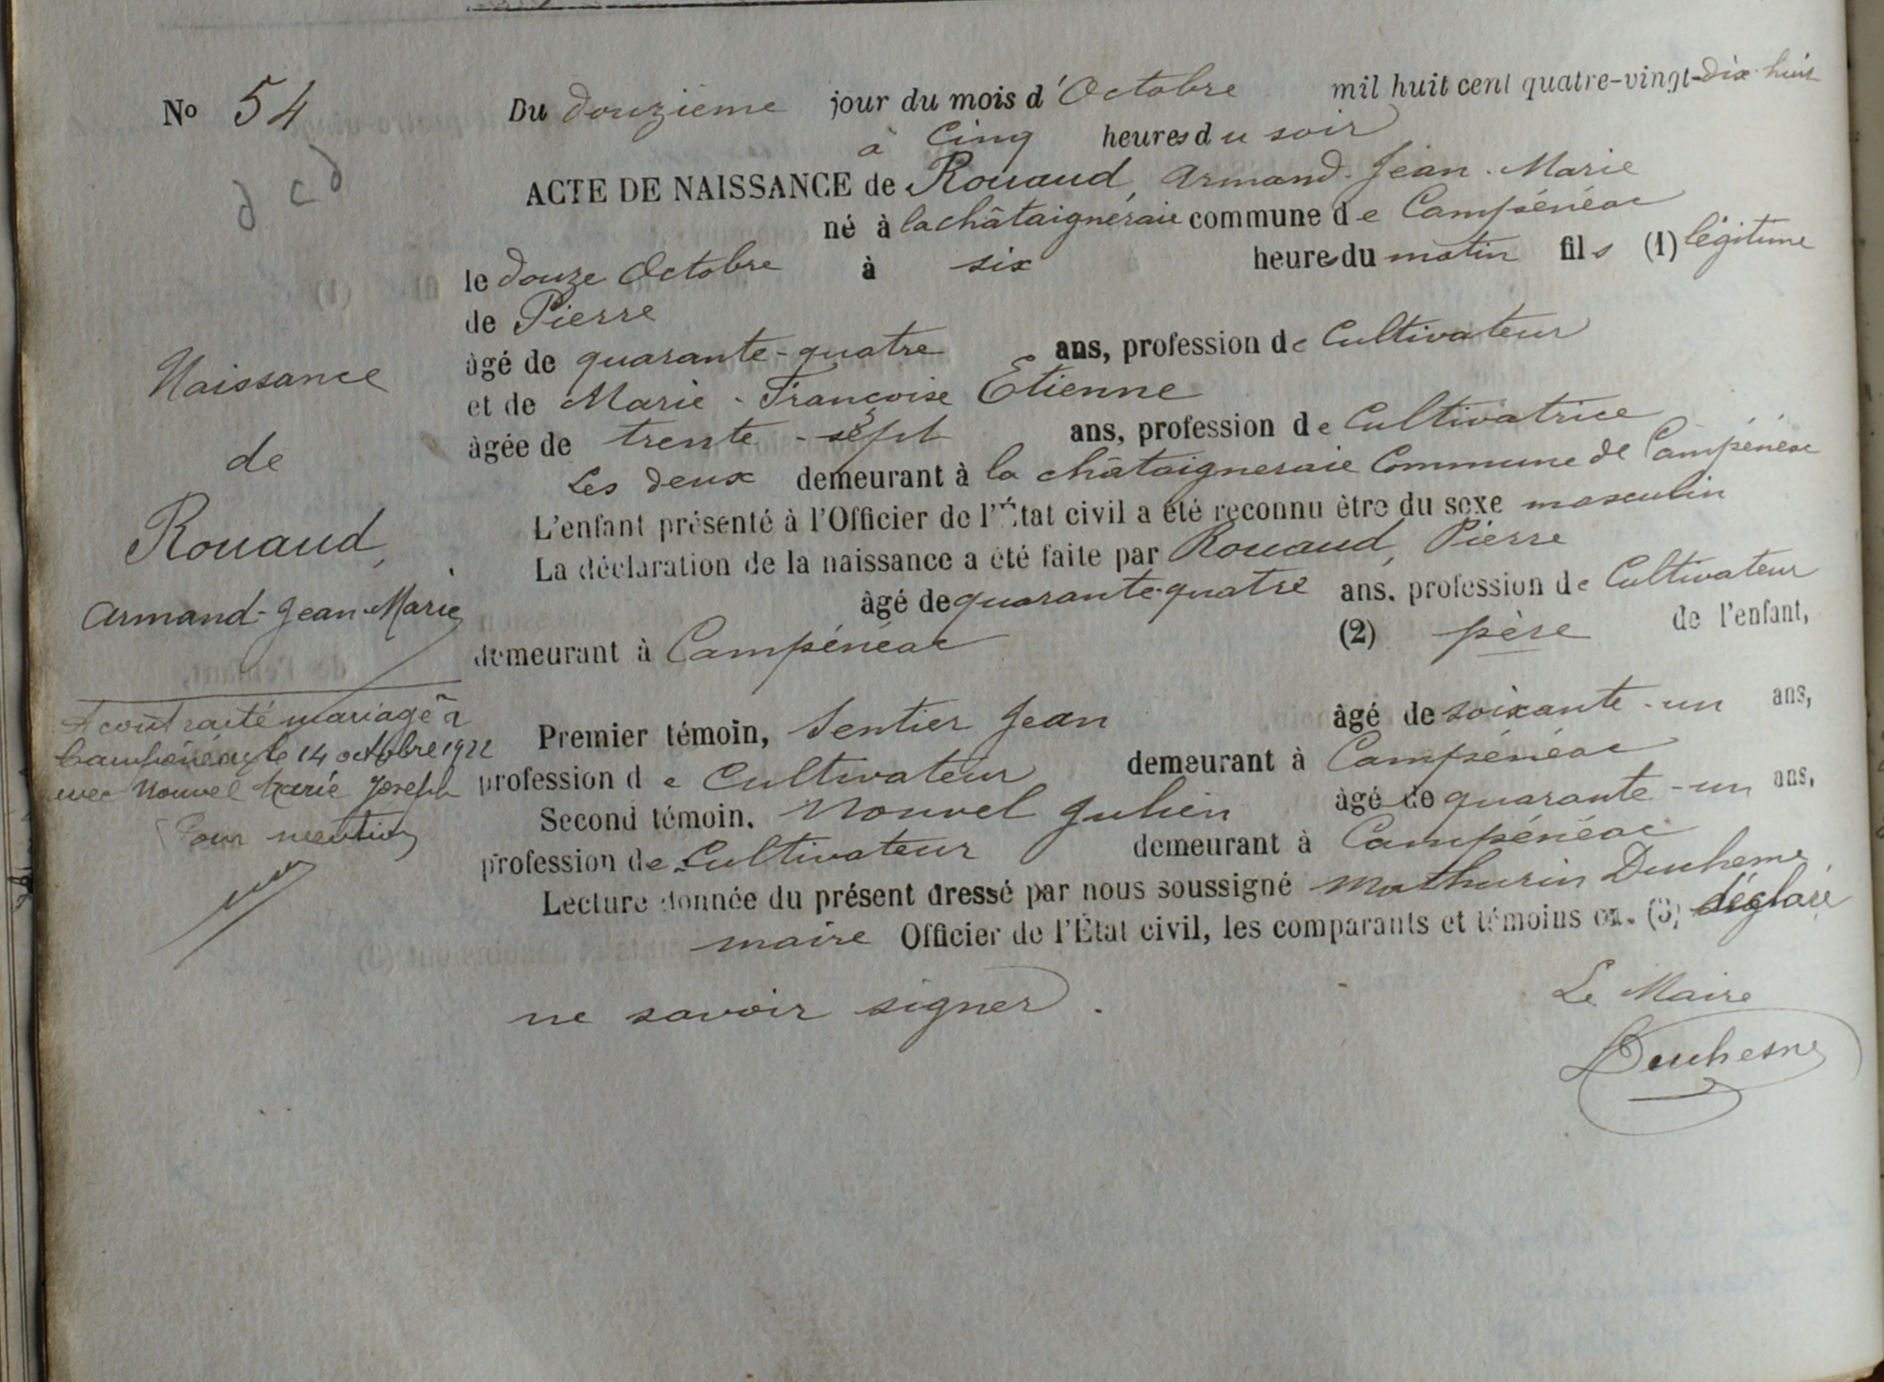 No 54
Du douzième jour du mois d'Octobre mil huit cent quatre-vingt-dix-huit
à Cinq heures du soir
ACTE DE NAISSANCE de Rouaud, Armand-Jean-Marie
né à la châtaigneraie commune de Campénéac
le douze Octobre à six heures du matin fils (1) légitime
de Pierre
âgé de quarante-quatre ans, profession de Cultivateur
et de Marie-Françoise Etienne
âgée de trente-sept ans, profession de Cultivatrice
Les deux demeurant à la châtaigneraie Commune de Campénéac
L'enfant présenté à l'Officier de l'État civil a été reconnu être du sexe masculin
La déclaration de la naissance a été faite par Rouaud, Pierre
âgé de quarante-quatre ans, profession de Cultivateur
demeurant à Campénéac (2) père de l'enfant,
Premier témoin, Sentier Jean âgé de soixante-un ans,
profession de Cultivateur demeurant à Campénéac
Second témoin, Nouvel Julien âgé de quarante-un ans,
profession de Cultivateur demeurant à Campénéac
Lecture donnée du présent dressé par nous soussigné Mathurin Duchesne
maire Officier de l'État civil, les comparants et témoins ont (3) déclaré
ne savoir signer.
Le Maire
Duchesne
dcd
Naissance
de
Rouaud,
Armand-Jean-Marie
A contracté mariage à
Campénéac le 14 octobre 1922
avec Nouvel Marie Joseph
Pour mention